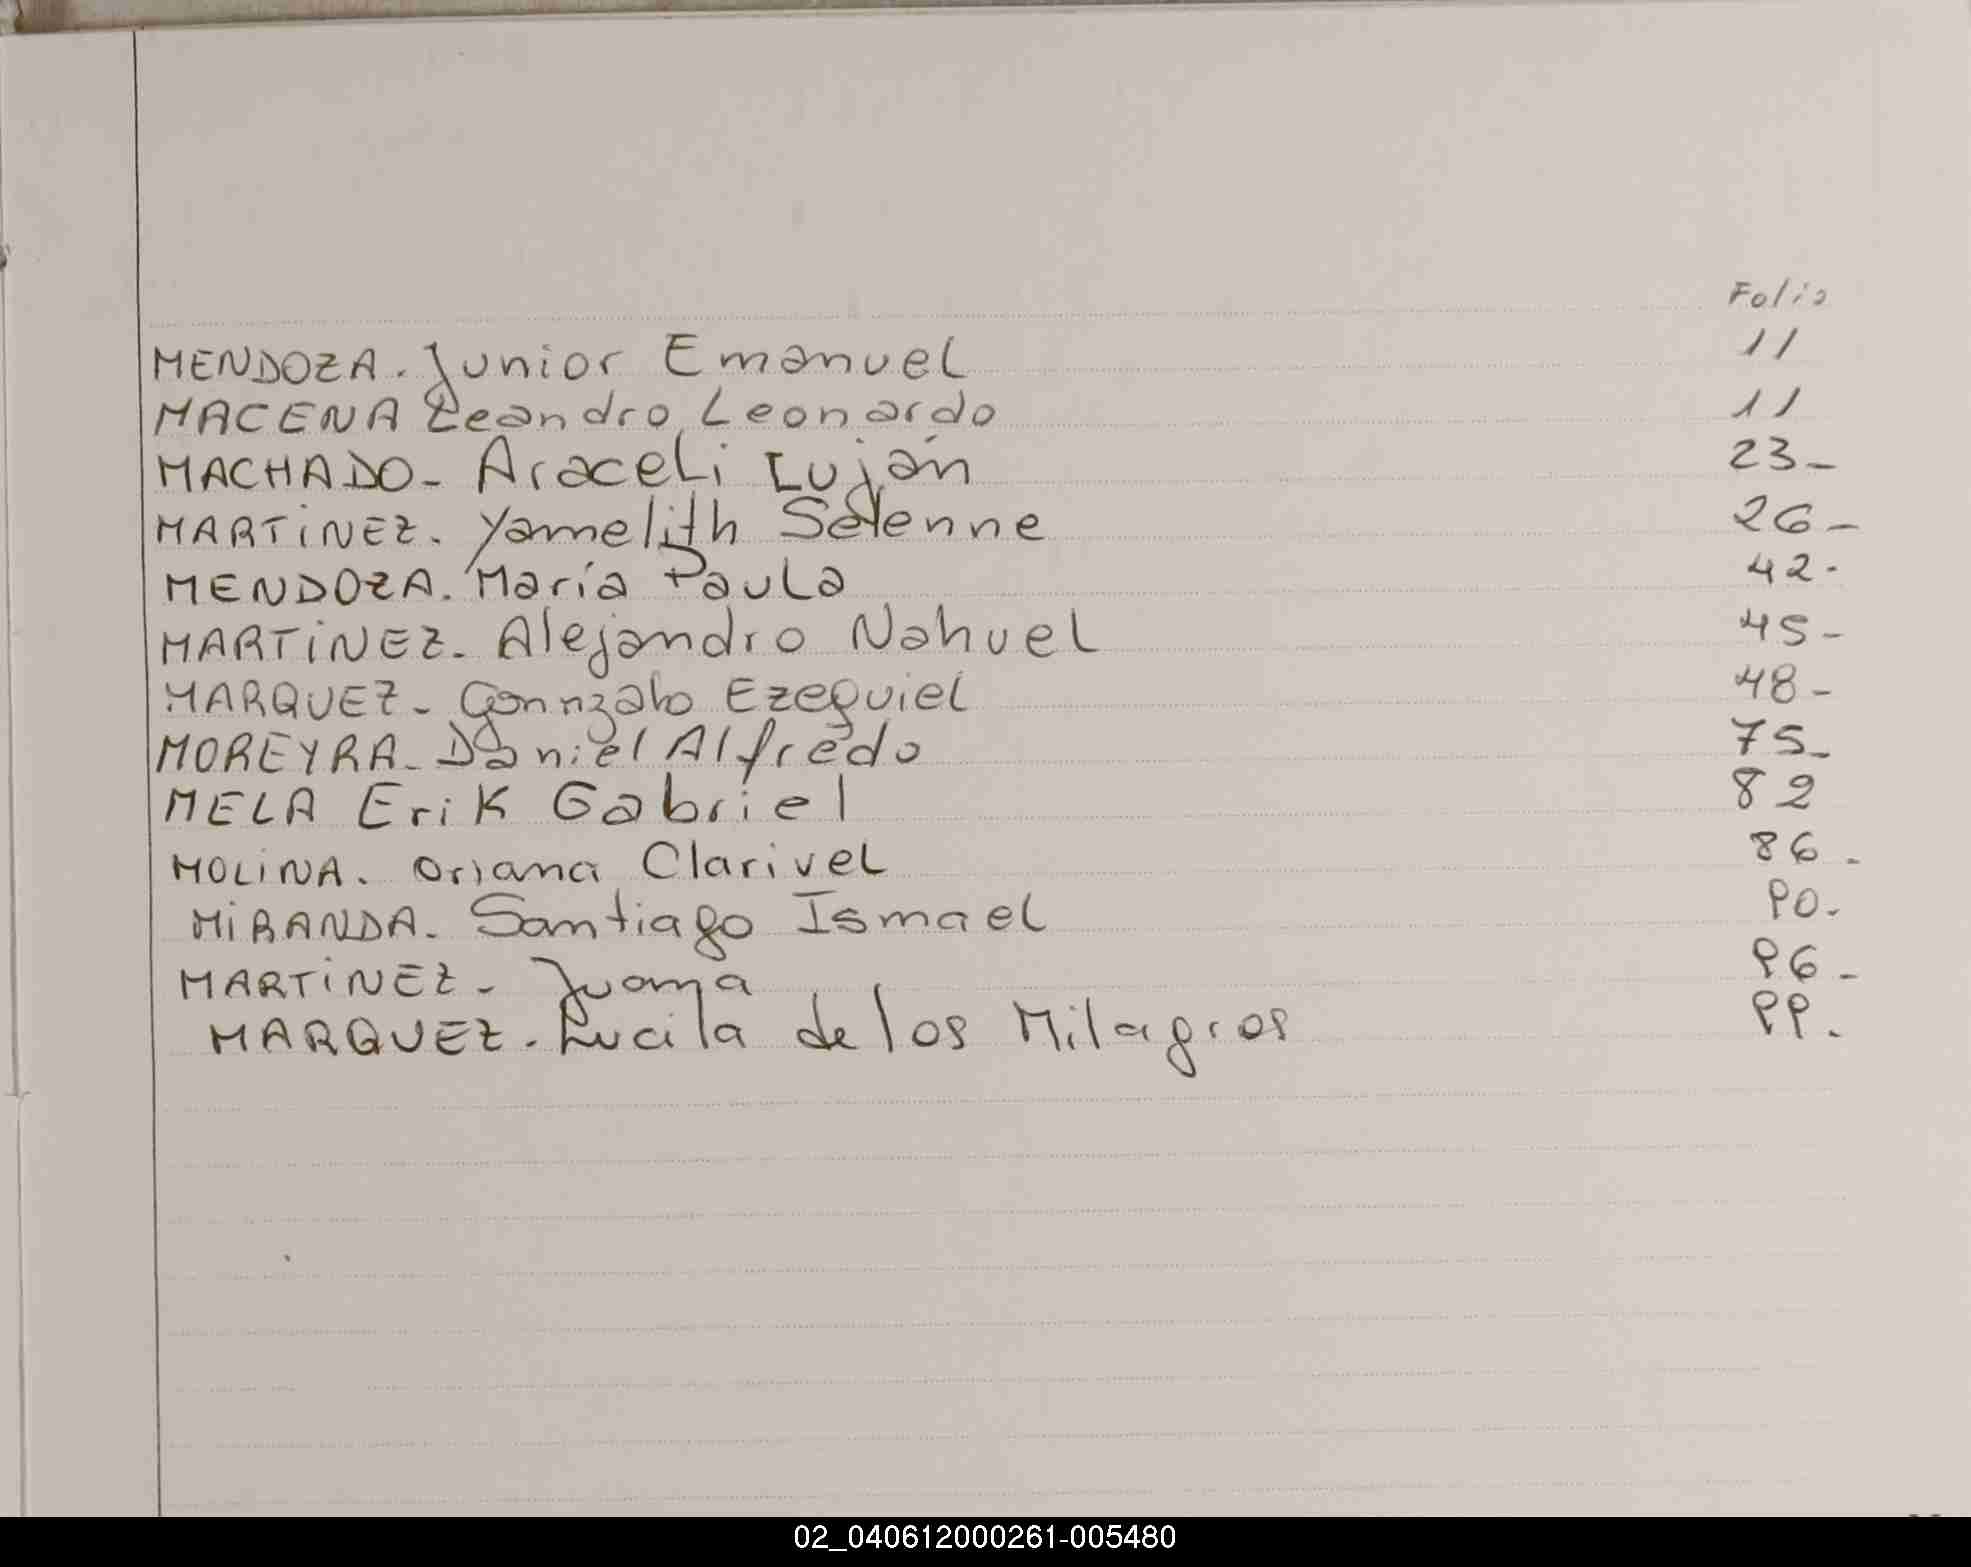 Folio
MENDOZA. Junior Emanuel 11
MACENA Leandro Leonardo 11
MACHADO- Araceli Luján 23-
MARTiNEZ. Yamelith Selenne 26-
MENDOZA. María Paula 42.
MARTiNEZ. Alejandro Nahuel 45-
MARQUEZ- Gonnzalo Ezequiel 48-
MOREYRA- Daniel Alfredo 75-
MELA Erik Gabriel 82
MOLiNA. Oriana Clarivel 86.
MiRANDA. Santiago Ismael 90.
MARTiNEZ- Juana 96-
MARQUEZ. Lucila de los Milagros 99.
02_040612000261-005480